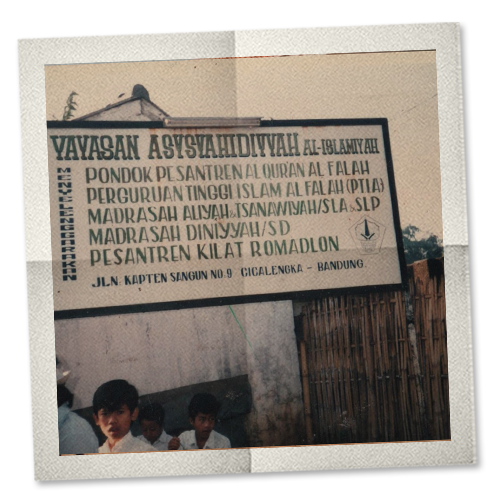 YAYASAN ASYSYAHIDIYYAH AL-ISLAMIYAH
MENYELENGGARAKAN
PONDOK PESANTREN AL QUR'AN AL FALAH
PERGURUAN TINGGI ISLAM AL FALAH (PTIA)
MADRASAH ALIYAH, TSANAWIYAH/SLA, SLP
MADRASAH DINIYYAH/SD
PESANTREN KILAT ROMADLON
JLN. KAPTEN SANGUN NO.9 CICALENGKA - BANDUNG.